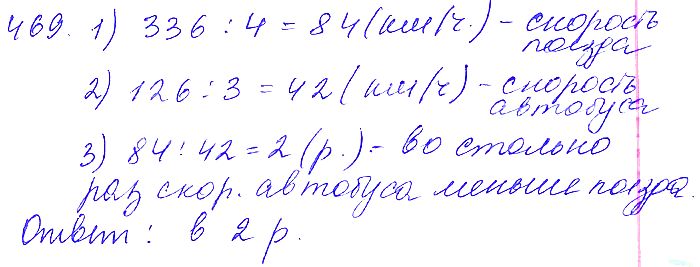 469. 1) 336 : 4 = 84 (км/ч.) - скорость
поезда
2) 126 : 3 = 42 (км/ч) - скорость
автобуса
3) 84 : 42 = 2 (р.) - во столько
раз скор. автобуса меньше поезда.
Ответ: в 2 р.